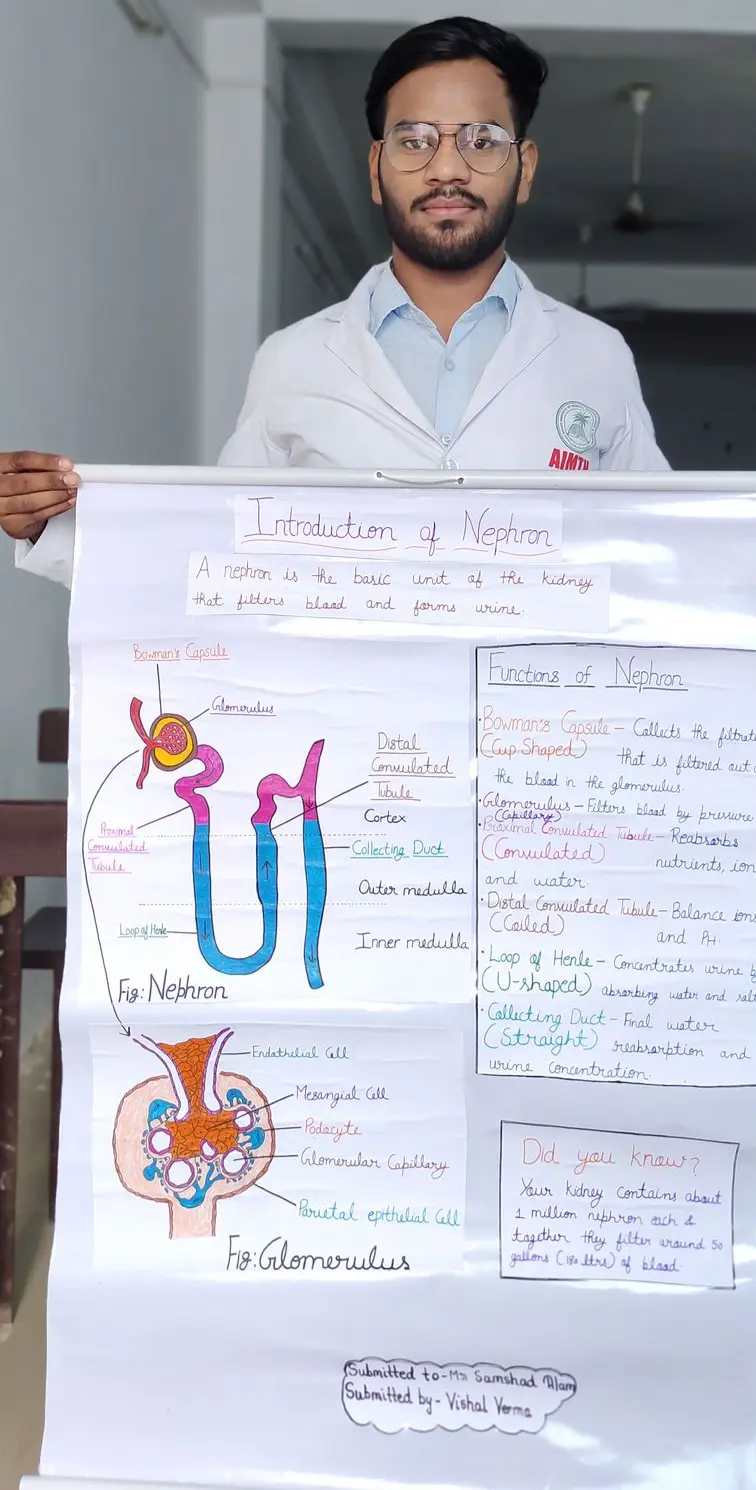 AIMTH
Introduction of Nephron
A nephron is the basic unit of the kidney
that filters blood and forms urine.
Bowman's Capsule
Glomerulus
Distal
Convulated
Tubule
Cortex
Proximal
Convulated
Tubule
Collecting Duct
Outer medulla
Loop of Henle
Inner medulla
Fig: Nephron
Functions of Nephron
• Bowman's Capsule – Collects the filtrat
(Cup Shaped) that is filtered out
the blood in the glomerulus.
• Glomerulus – Filters blood by pressure
(Capillary)
Proximal Convulated Tubule – Reabsorbs
(Convulated) nutrients, ion
and water.
• Distal Convulated Tubule – Balance ions
(Coiled) and PH.
• Loop of Henle – Concentrates urine b
(U-shaped) absorbing water and sal
• Collecting Duct – Final water
(Straight) reabsorption and
urine concentration.
Endothelial Cell
Mesangial Cell
Podocyte
Glomerular Capillary
Parietal epithelial Cell
Fig: Glomerulus
Did you know?
Your kidney contains about
1 million nephron each &
together they filter around 50
gallons (180 ltrs) of blood.
Submitted to - Mr Samshad Alam
Submitted by - Vishal Verma